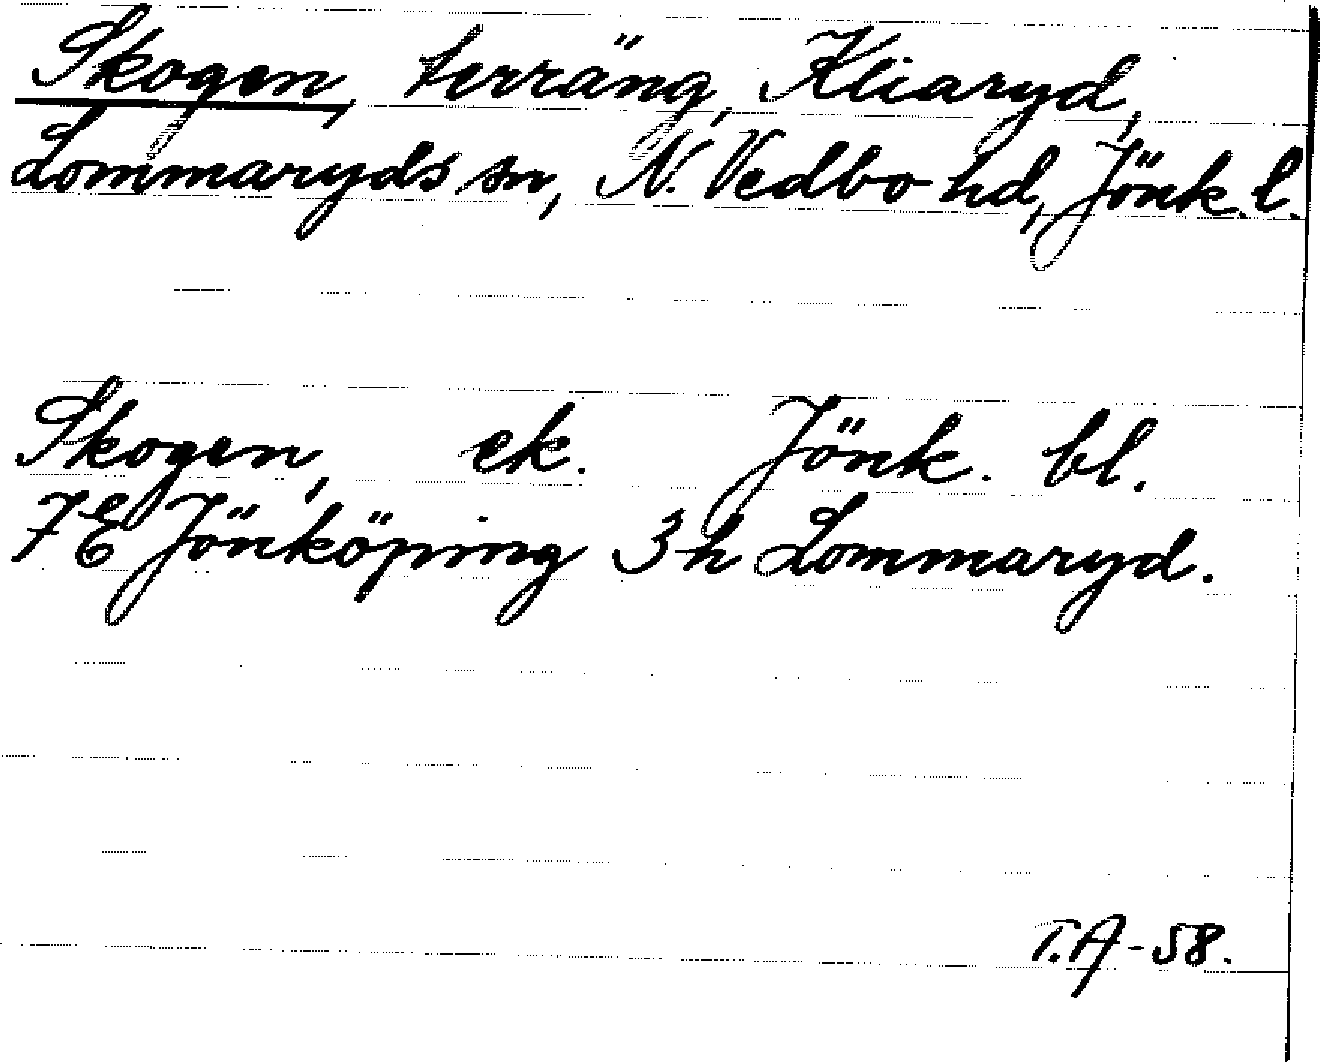 Skogen, terräng, Kliaryd,
Lommaryds sn, N. Vedbo hd, Jönk. l.
Skogen, ek. Jönk. bl.
7E Jönköping 3h Lommaryd.
T.A-58.